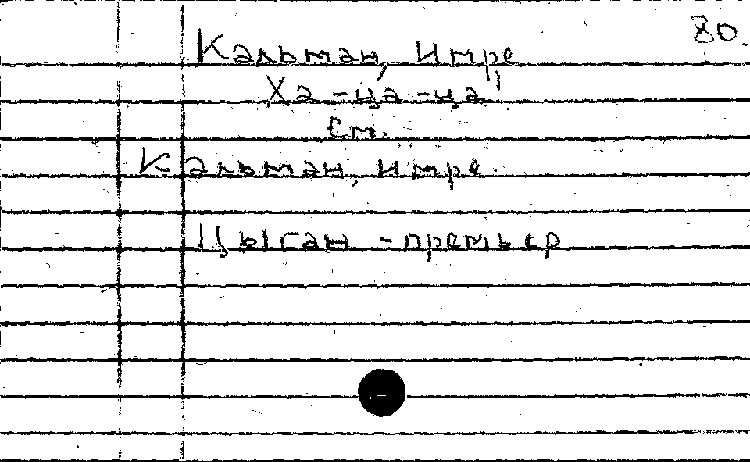 80.
Кальман, Имре
Ха-ца-ца"
См.
Кальман, Имре.
Цыган-премьер